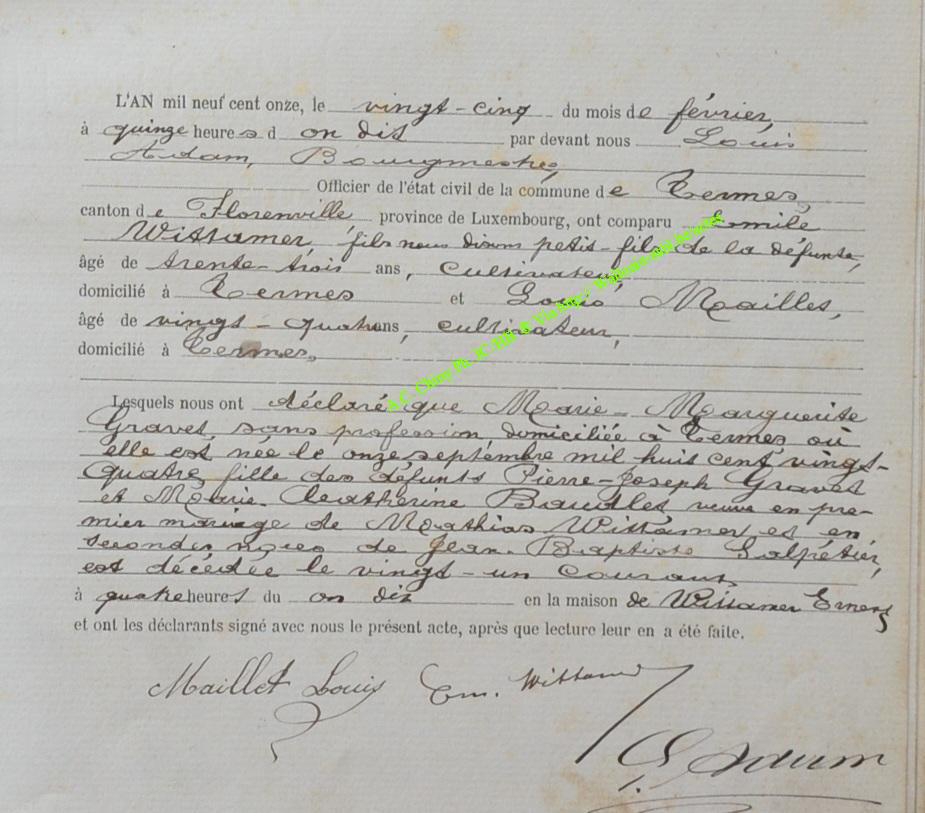 L'AN mil neuf cent onze, le vingt-cinq du mois de février,
à quinze heures d on dit par devant nous Louis
Adam, Bourgmestre,
Officier de l'état civil de la commune de Termes,
canton de Florenville province de Luxembourg, ont comparu Emile
Wittamer, fils nous disons petit-fils de la défunte,
âgé de trente-trois ans, cultivateur
domicilié à Termes et Louis Maillet,
âgé de vingt-quatre ans, cultivateur,
domicilié à Termes,
Lesquels nous ont déclaré que Marie-Marguerite
Gravet, sans profession, domiciliée à Termes où
elle est née le onze septembre mil huit cent vingt-
quatre, fille des défunts Pierre-Joseph Gravet
et Marie-Catherine veuve en pre-
mier mariage de Mathias Wittamer et en
secondes noces de Jean-Baptiste Salpétier,
est décédée le vingt-un courant
à quatre heures du on dit en la maison de Wittamer Ernest
et ont les déclarants signé avec nous le présent acte, après que lecture leur en a été faite.
Maillet Louis Em. Wittamer
L Adam